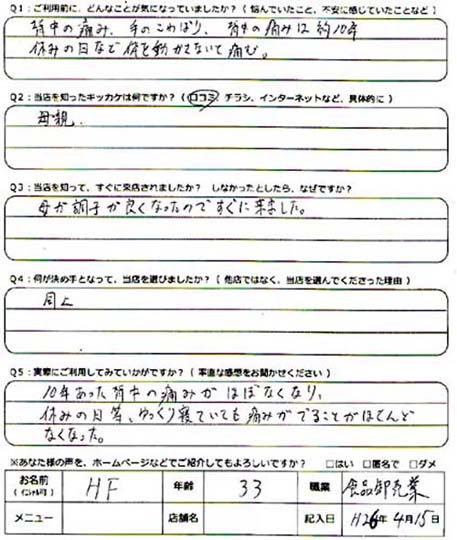 Q1：ご利用前に、どんなことが気になっていましたか？（ 悩んでいたこと、不安に感じていたことなど ）
背中の痛み、手のこわばり、背中の痛みは約10年
休みの日など体を動かさないで痛む。
Q2：当店を知ったキッカケは何ですか？（ 口コミ、チラシ、インターネットなど、具体的に ）
母親.
Q3：当店を知って、すぐに来店されましたか？ しなかったとしたら、なぜですか？
母が調子が良くなったのですぐに来ました。
Q4：何が決め手となって、当店を選びましたか？（ 他店ではなく、当店を選んでくださった理由 ）
同上
Q5：実際にご利用してみていかがですか？（ 率直な感想をお聞かせください ）
10年あった背中の痛みがほぼなくなり、
休みの日等、ゆっくり寝ていても痛みがでることがほとんど
なくなった。
※あなた様の声を、ホームページなどでご紹介してもよろしいですか？ □はい □匿名で □ダメ
お名前 （イニシャル可） HF 年齢 33 職業 食品卸売業
メニュー 店舗名 記入日 H26年4月15日